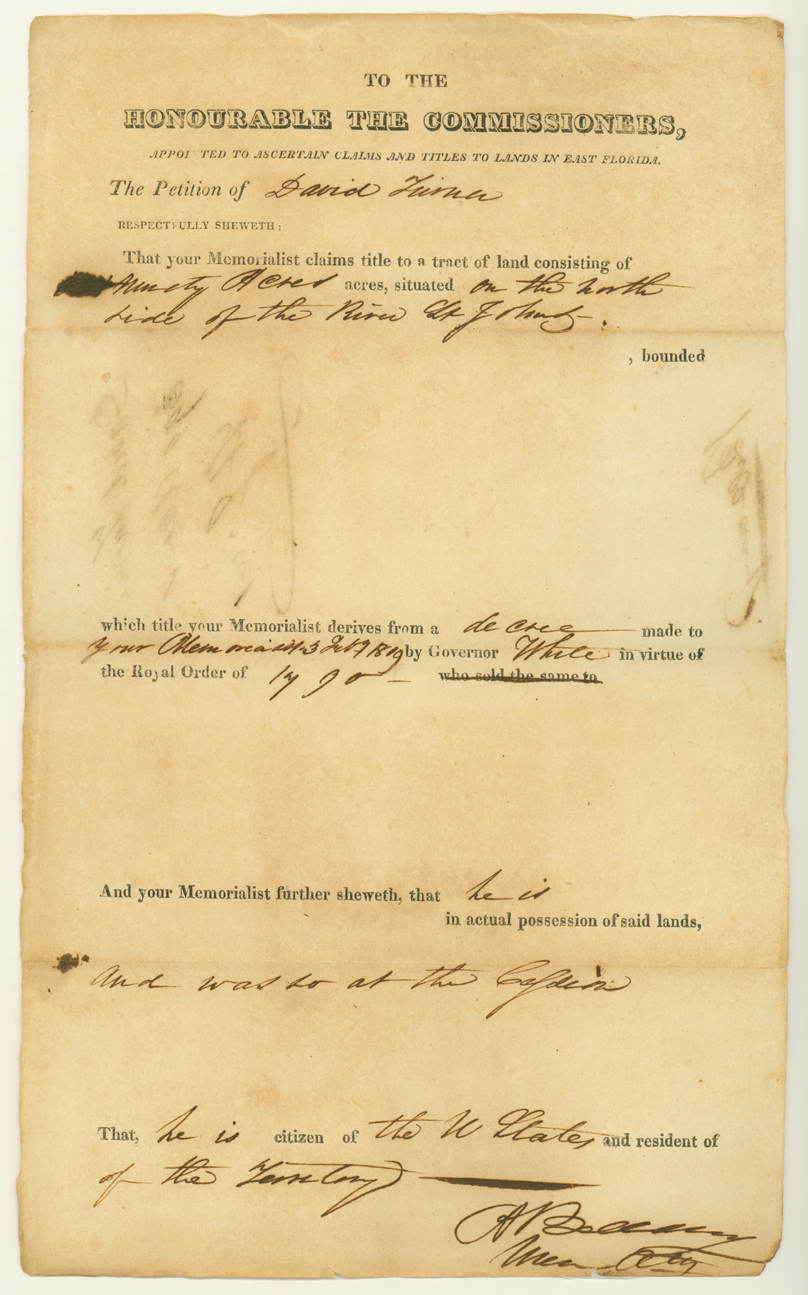 TO THE
HONOURABLE THE COMMISSIONERS,
APPOI TED TO ASCERTAIN CLAIMS AND TITLES TO LANDS IN EAST FLORIDA.
The Petition of David Turner
RESPECTFULLY SHEWETH:
That your Memorialist claims title to a tract of land consisting of
Ninety Acres acres, situated on the north
side of the River St Johns.
, bounded
which title your Memorialist derives from a decree made to
your Memorialist 3 by Governor White in virtue of
the Royal Order of 1790 — who sold the same to
And your Memorialist further sheweth, that he is
in actual possession of said lands,
And was so at the Cession
That, he is citizen of the U States and resident of
of the Territory